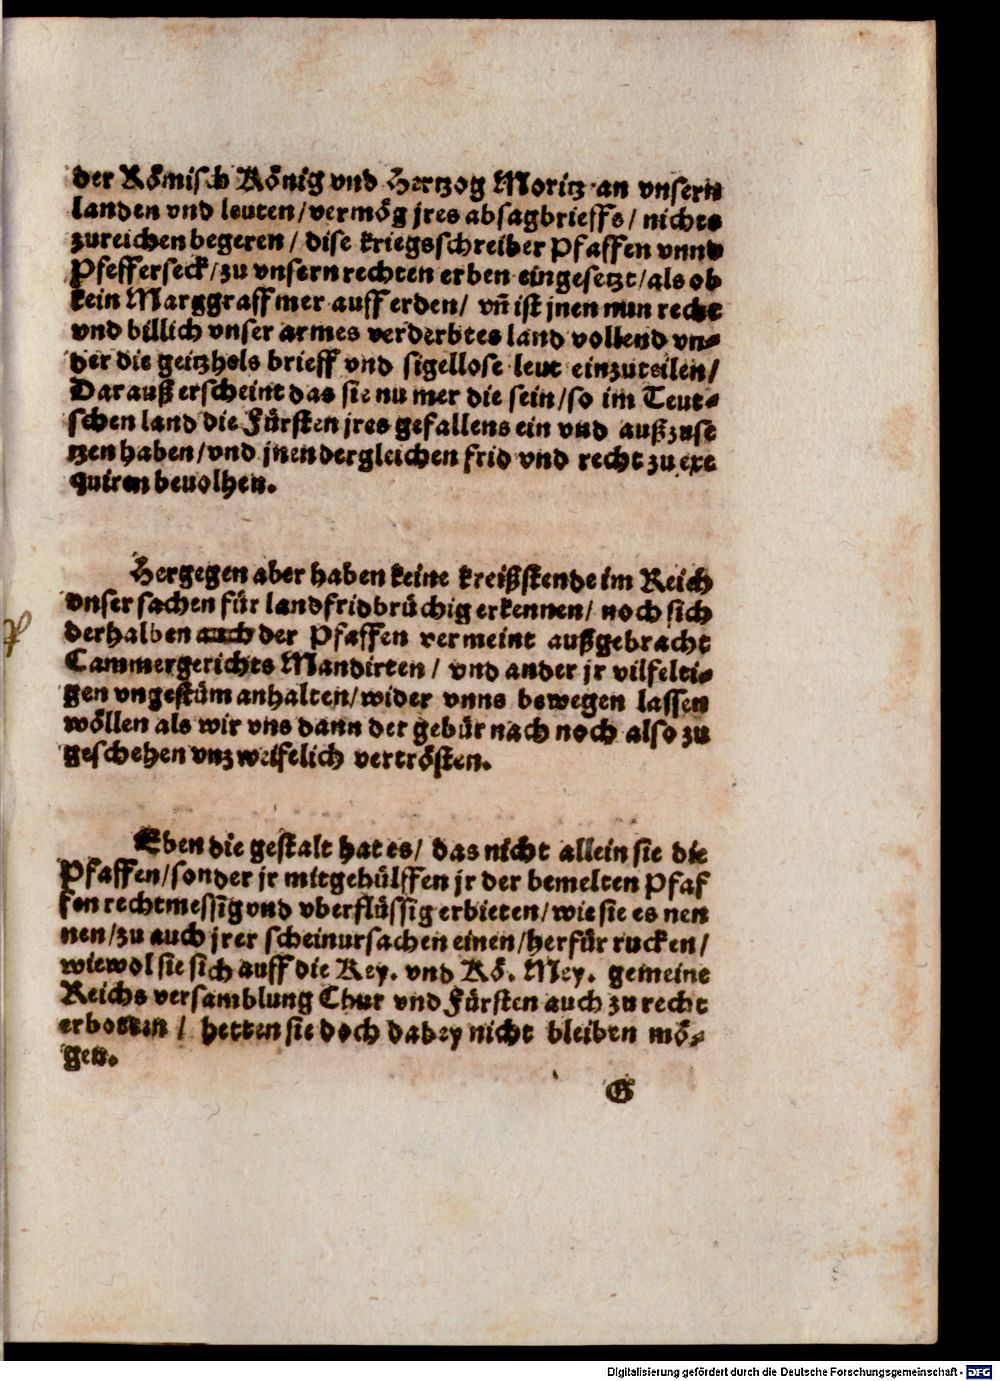 der Römisch König vnd Hertzog Moritz an vnsern
landen vnd leuten/vermög jres absagbrieffs/ nichts
zureichen begeren/ dise kriegsschreiber Pfaffen vnnd
Pfefferseck/zu vnsern rechten erben eingesetzt/als ob
kein Marggraff mer auff erden/ vñ ist jnen nun recht
vnd billich vnser armes verderbtes land vollend vn-
der die geitzhels brieff vnd sigellose leut einzuteilen/
Darauß erscheint das sie nu mer die sein/so im Teut-
schen land die Fürsten jres gefallens ein vnd außzuse
tzen haben/vnd jnen dergleichen frid vnd recht zu exe
quiren beuolhen.
Hergegen aber haben keine kreißstende im Reich
vnser sachen für landfridbrüchig erkennen/ noch sich
derhalben auch der Pfaffen vermeint außgebracht
Cammergerichts Mandirten/ vnd ander jr vilfelti-
gen vngestüm anhalten/wider vnns bewegen lassen
wöllen als wir vns dann der gebür nach noch also zu
geschehen vnzweifelich vertrösten.
Eben die gestalt hat es/ das nicht allein sie die
Pfaffen/sonder jr mitgehülffen jr der bemelten Pfaf
fen rechtmessig vnd vberflüssig erbieten/wie sie es nen
nen/zu auch jrer scheinursachen einen/herfür rucken/
wiewol sie sich auff die Key. vnd Kö. Mey. gemeine
Reichs versamblung Chur vnd Fürsten auch zu recht
erbotten/ hetten sie doch dabey nicht bleiben mö-
gen.
G
Digitalisierung gefördert durch die Deutsche Forschungsgemeinschaft - DFG